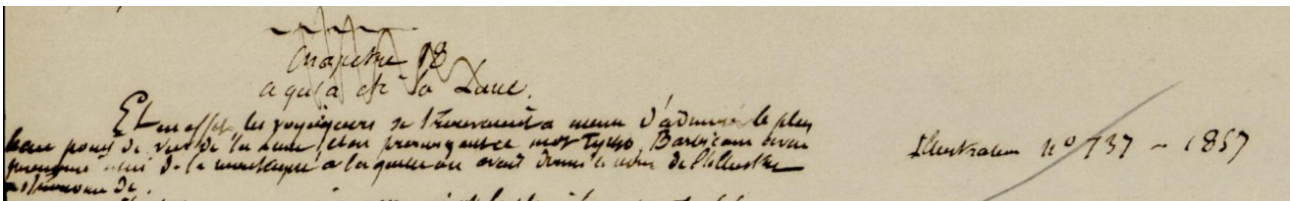 Chapitre 18
a qu'a été la Lune.
Et en effet, les voyageurs se trouvaient a meme d'admirer le plus
beau point de vue de la Lune, et en prononçant ce mot Tycho, Barbicane avait
prononcé de la montagne a laquelle on avait donné le nom de l'illustre
astronome de
Illustration nº 737 - 1857